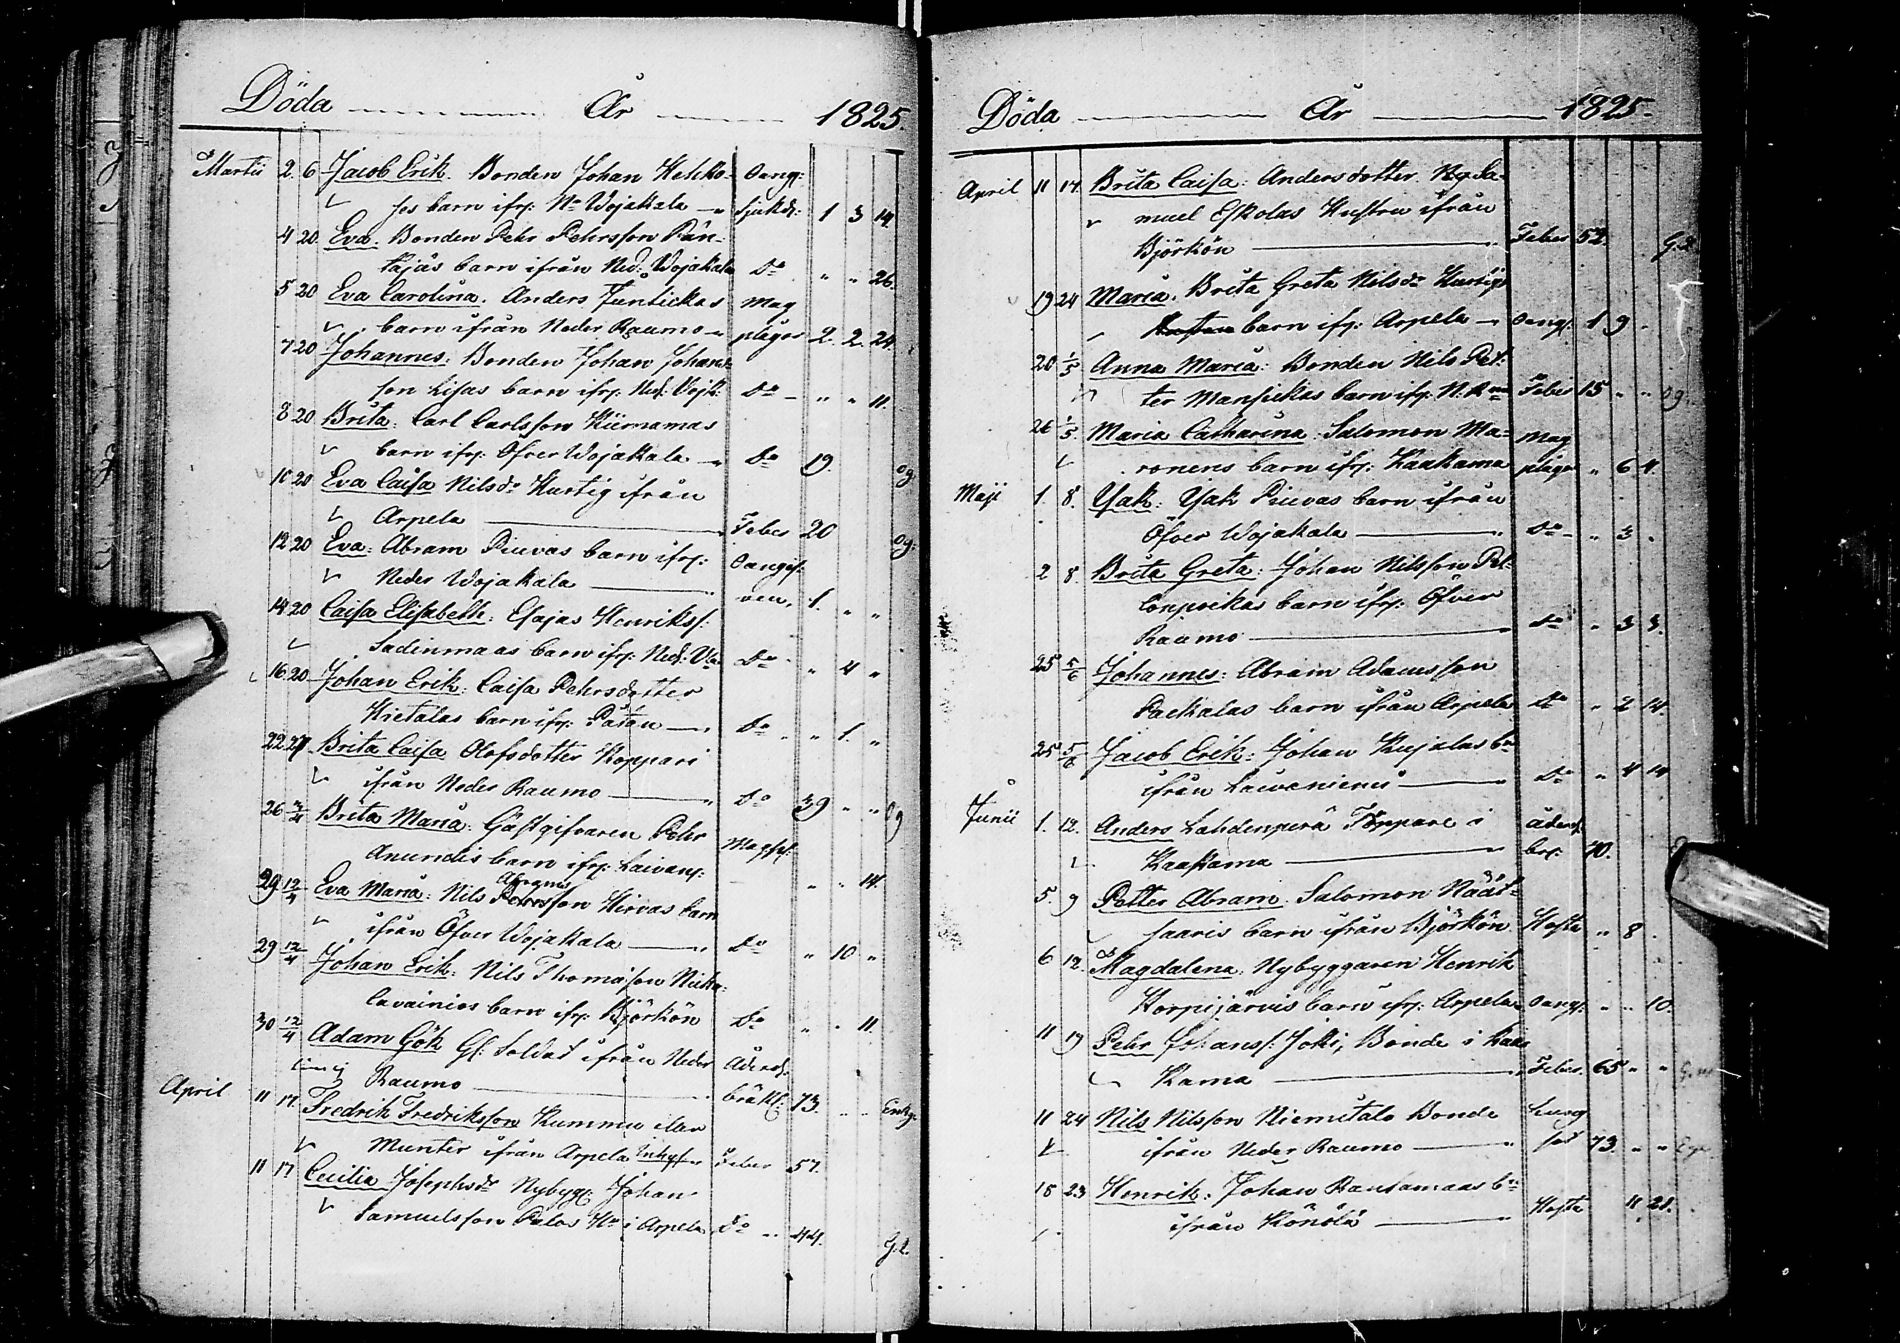 Döda År 1825.
Martii 2. 6 Jacob Erik. Bonden Johan Oang:
barn ifr: Nr Wojakala sjukd: 1 3 14.
4 20. Eva. Bonden Pehr Pehrsson
barn ifrån Ned: Wojakala Do " " 26.
5 20 Eva Carolina. Anders Juntickas mag
barn ifrån Neder Raumo plågor 2. 2. 24.
7 20 Johannes: Bonden Johan Johans-
son Lisas barn ifr: Ned: Vojk: Do " " 11.
8 20 Brita. Carl Carlsson Kiirnamas
barn ifr: Öfver Wojakala Do 19. Og
10 20 Eva Caisa Nilsdr Hurtig ifrån
Arpela Feber 20 Og:
12 20 Eva: Abram Piuvas barn ifr: Oangif:
Neder Wojakala ven. 1. " "
14 20 Caisa Elisabeth: Esajas Henrikss:
Sadinmaas barn ifr: Ned: Do " 4 "
16 20 Johan Erik: Caisa Pehrsdotter
Hietalas barn ifr: Do " 1. "
22 27 Brita Caisa Olofsdotter Koppari
ifrån Neder Raumo Do 39 " " Og
26 3/4 Brita Maria: Gästgifvaren Pehr Magpl:
Anundis barn ifr: Laivan: " " 14.
29 12/4 Eva Maria: Nils Abrams Petersson Hirvas barn
ifrån Öfver Wojakala Do " 10 "
29 12/4 Johan Erik: Nils Thomasson Nicka-
lavainios barn ifr: Björkön Do " " 11.
30 12/4 Adam Gök Gl: Soldat ifrån Neder Åderd:
Raumo bräkl: 73. " " Enkg:
April 11 17. Fredrik Fredriksson Kummu eller
Munter ifrån Arpela Inhys Feber 57.
11 17 Cecilia Josephsdr Nybygg: Johan
Samuelsson Palos Hu i Arpela Do 44. G.l.
Döda År 1825.
April 11 17. Brita Caisa: Andersdotter Nyb Sa-
muel Eskolas Hustru ifrån
Björkön Feber 52
19 24 Maria. Brita Greta Nilsdr Hurtigs
barn ifr: Arpela Oang: 1 9 "
20 1/5 Anna Maria: Bonden Nils Pet-
ter Mansickas barn ifr: N: Rmo Feber 15 " " Og:
26 1/5 Maria Catharina: Salomon Ma- mag
ronens barn ifr: Kaakama plågor " 6 4.
Maji 1. 8. Isak: Isak Piuvas barn ifrån
Öfver Wojakala Do " 3 "
2 8 Brita Greta: Johan Nilsson Pel-
barn ifr: Öfver
Raumo Do " 3 3.
25 5/6 Johannes: Abram Adamsson
Packalas barn ifrån Arpela Do " 2 14.
25 5/6 Jacob Erik: Johan Kujalas bn
ifrån Laivaniemi Do " 4 14
Junii 1. 12. Anders Lahdenperä Torppare i åderd
Kaakama br: 70.
5. 9 Petter Abram. Salomon Näät-
saaris barn ifrån Björkön Hosta " 8 "
6 12. Magdalena: Nybyggaren Henrik
Korpijärvis barn ifr: Arpela Oang: " " 10.
11 19 Pehr Johanss: Joki, Bonde i Kaa
Kama Feber 65 " "
11 24 Nils Nilsson Niemitalo Bonde Lung
ifrån Neder Raumo sot 73. " "
18 23 Henrik: Johan Rantamaas bn
ifrån Könölä Hosta 11. 21.